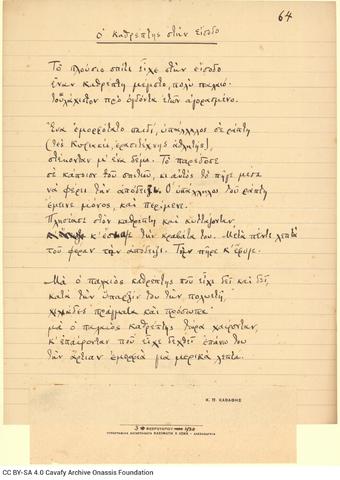 64
Ὁ καθρέπτης στὴν εἴσοδο
Τὸ πλούσιο σπίτι εἶχε στὴν εἴσοδο
ἕναν καθρέπτη μέγιστο, πολὺ παλαιό·
τουλάχιστον πρὸ ὀγδόντα ἐτῶν ἀγορασμένο.
Ἕνα ἐμορφότατο παιδί, ὑπάλληλος σὲ ράπτη
(τὲς Κυριακές, ἐρασιτέχνης ἀθλητής),
στέκονταν μ' ἕνα δέμα. Τὸ παρέδοσε
σὲ κάποιον τοῦ σπιτιοῦ, κι αὐτὸς τὸ πῆγε μέσα
νὰ φέρει τὴν ἀπόδειξι. Ὁ ὑπάλληλος τοῦ ράπτη
ἔμεινε μόνος, καὶ περίμενε.
Πλησίασε στὸν καθρέπτη καὶ κυττάζονταν
κ' ἔσιαζε τὴν κραβάτα του. Μετὰ πέντε λεπτὰ
τοῦ φέραν τὴν ἀπόδειξι. Τὴν πῆρε κ' ἔφυγε.
Μὰ ὁ παλαιὸς καθρέπτης ποῦ εἶχε δεῖ καὶ δεῖ,
κατὰ τὴν ὕπαρξίν του τὴν πολυετῆ,
χιλιάδες πράγματα καὶ πρόσωπα·
μὰ ὁ παλαιὸς καθρέπτης τώρα χαίρονταν,
κ' ἐπαίρονταν ποῦ εἶχε δεχθεῖ ἐπάνω του
τὴν ἄρτιαν ἐμορφιὰ γιὰ μερικὰ λεπτά.
Κ. Π. ΚΑΒΑΦΗΣ
3 ΦΕΒΡΟΥΑΡΙΟΥ 1930
CC BY-SA 4.0 Cavafy Archive Onassis Foundation